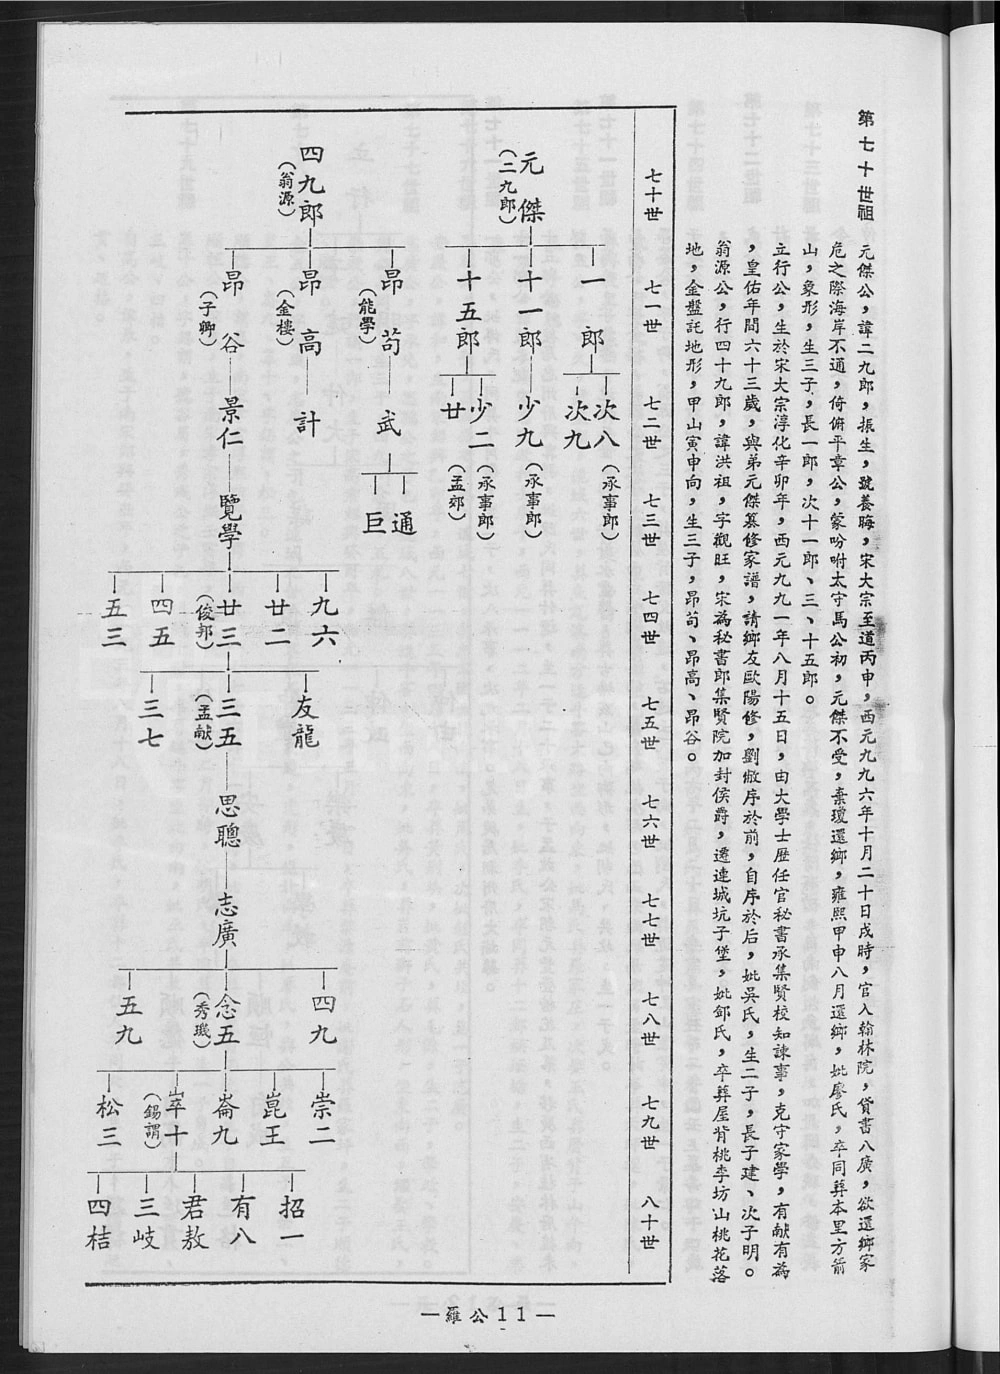 第七十世祖
元傑公，諱二九郎，振生，號養晦，宋大宗至道丙申，西元九九六年十月二十日戌時，官入翰林院，貸書八廣，欲還鄉家
危之際海岸不通，倚俯平章公，蒙吩咐太守馬公初，元傑不受，棄瓊還鄉，雍熙甲申八月還鄉，妣廖氏，卒同葬本里方箭
山，象形，生三子，長一郎，次十一郎、三、十五郎。
立行公，生於宋大宗淳化辛卯年，西元九九一年八月十五日，由大學士歷任官秘書承集賢校知諫事，克守家學，有献有為
，皇佑年間六十三歲，與弟元傑纂修家譜，請鄉友歐陽修，劉敞序於前，自序於后，妣吳氏，生二子，長子建、次子明。
翁源公，行四十九郎，諱洪祖，字觀旺，宋為秘書郎集賢院加封侯爵，遷連城坑子堡，妣鄧氏，卒葬屋背桃李坊山桃花落
地，金盤託地形，甲山寅申向，生三子，昂茍、昂高、昂谷。
七十世
七一世
七二世
七三世
七四世
七五世
七六世
七七世
七八世
七九世
八十世
元傑
（二九郎）
四九郎
（翁源）
一郎
十一郎
十五郎
昂茍
（能學）
昂高
（金樓）
昂谷
（子卿）
次八
（承事郎）
次九
少九
（承事郎）
少二
（承事郎）
廿
（孟郊）
武
計
景仁
通
巨
覽學
九六
廿二
廿三
（俊邦）
四五
五三
友龍
三五
（孟献）
三七
思聰
志廣
四九
念五
（秀璣）
五九
崇二
崑王
崙九
崒十
（錫謂）
松三
招一
有八
君敖
三岐
四桔
—羅公11—